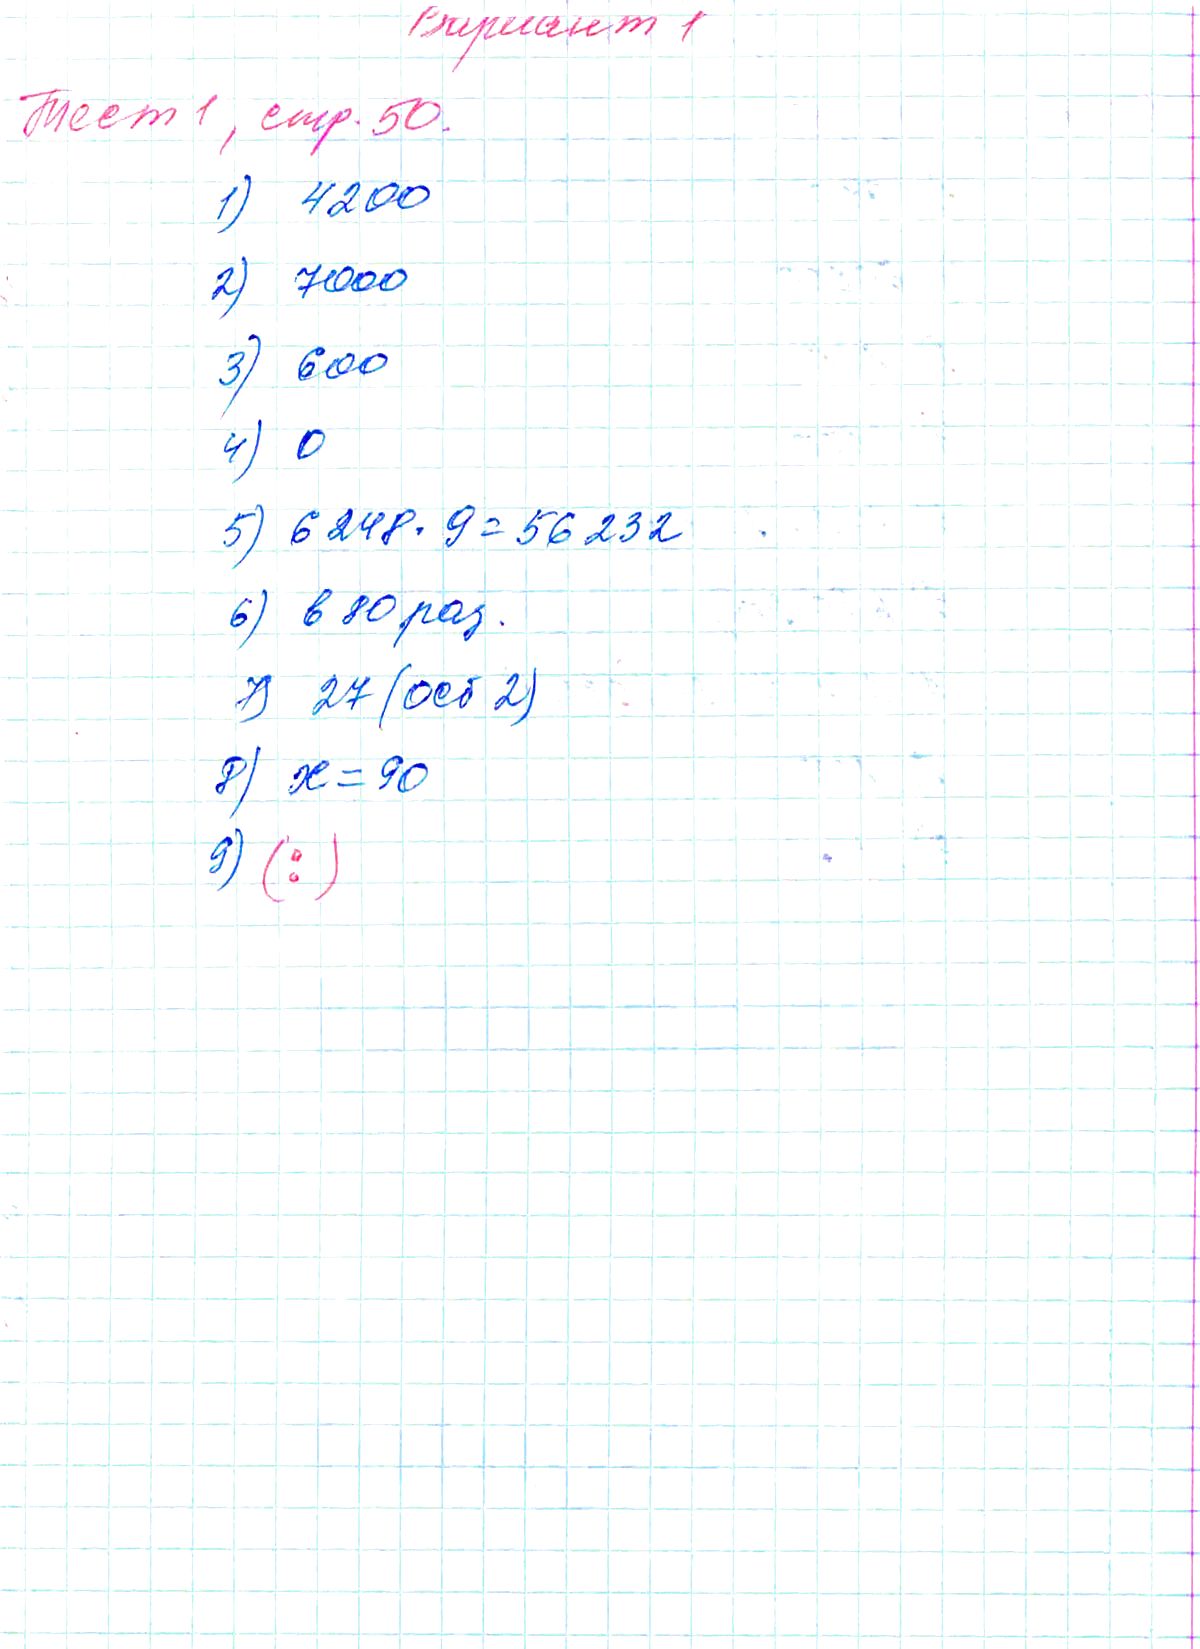 Вариант 1
Тест 1, стр. 50.
1) 4200
2) 7000
3) 600
4) 0
5) 6248 · 9 = 56232
6) в 80 раз.
7) 27 (ост 2)
8) x = 90
9) (:)